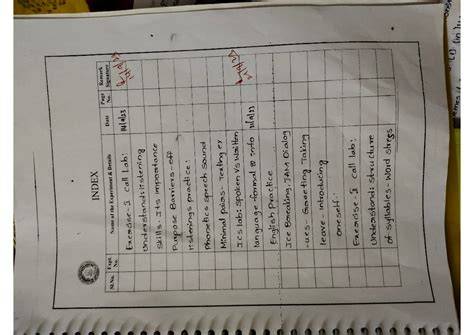 INDEX
Sl. No. Expt. No. Name of the Experiment & Details Date Page No. Remark Signature
Exercise-I call lab: 14/9/23
Understand: listening
skills. Its importance
Purpose Barriers-eff
listening practice:
Phonetics speech sound
Minimal pairs-
Ics lab: spoken Vs Written
language-formal & info
English Practice
Ice Breaking, JAM Dialog
-ues-Greeting Taking
leave-introducing
oneself.
Exercise-I call lab:
Understand: structure
of syllables-Word stress